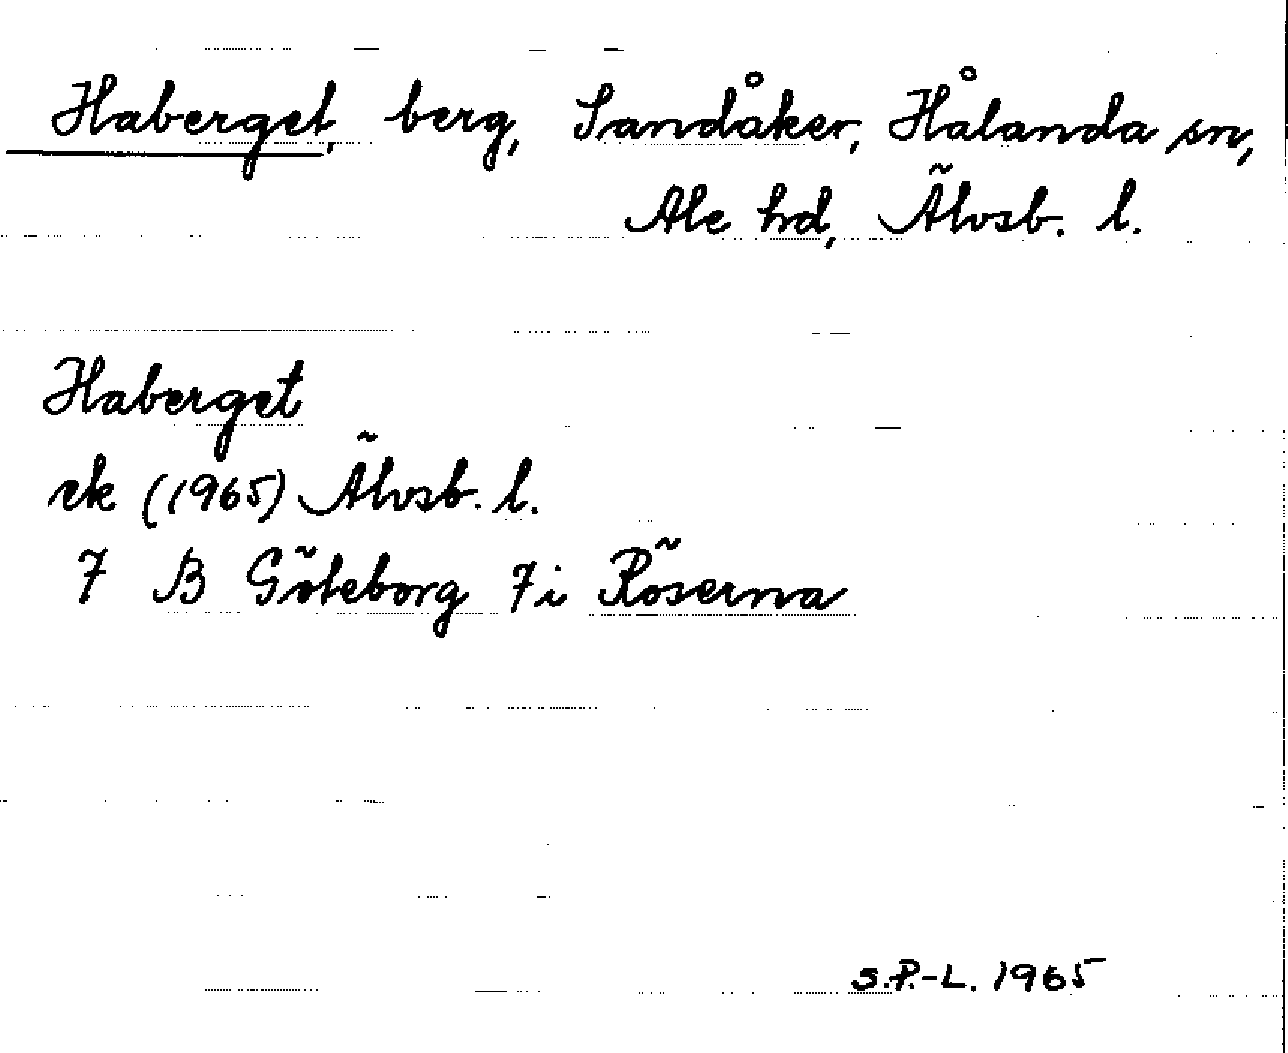 Haberget, berg, Sandåker, Hålanda sn,
Ale hd, Älvsb. l.
Haberget
ek (1965) Älvsb. l.
7 B Göteborg 7i Röserna
S.P.-L. 1965